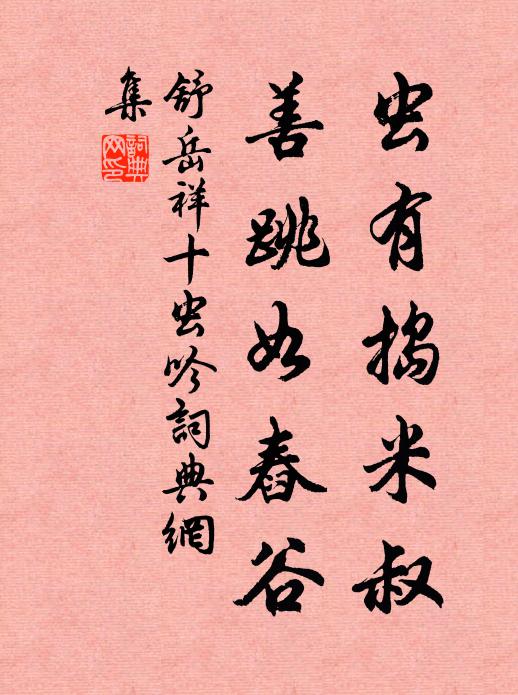 虫有捣米叔
善跳如舂谷
舒岳祥十虫吟詞典網
集
詞典
网印